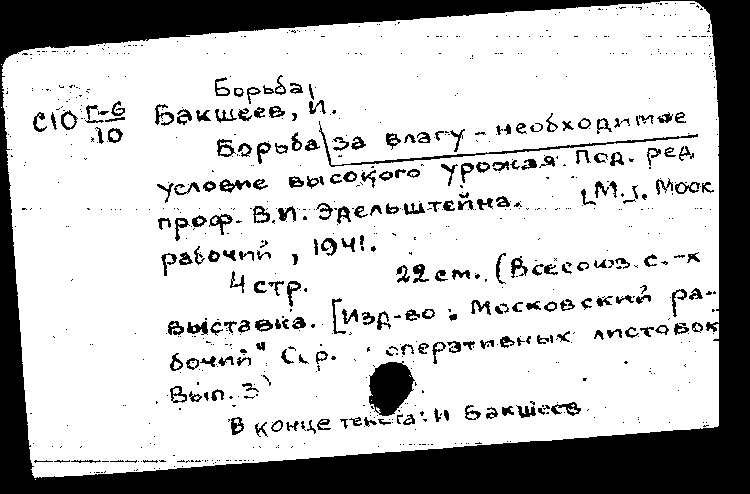 Борьба
С10 Г-6/10 Бакшеев, И.
Борьба за влагу - необходимое
условие высокого урожая. Под. ред.
проф. В.И. Эдельштейна. [М.]. Моск
рабочий, 1941.
4 стр. 22 см. (Всесоюз. с.-х
выставка. [Изд-во: Московский ра-
бочий" Сер. оперативных листовок
Вып. 3)
В конце текста: И Бакшеев